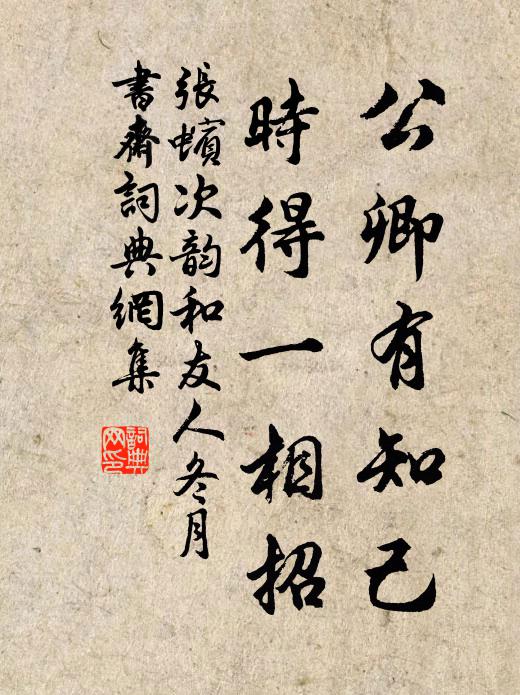 公卿有知己
時得一相招
張蠙次韵和友人冬月
書齋詞典網集
詞典
网印